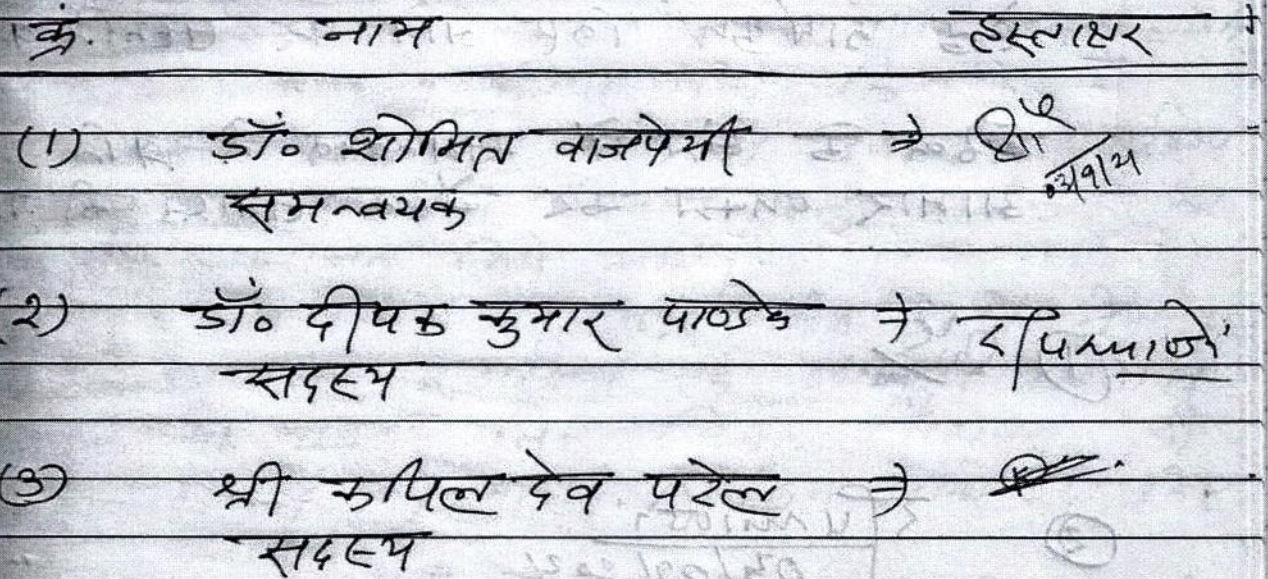 क्रं. नाम हस्ताक्षर
(1) डॉ० शोमित वाजपेयी →
03/9/21
समन्वयक
(2) डॉ० दीपक कुमार पाण्डे →
सदस्य
(3) श्री कपिल देव पटेल →
सदस्य